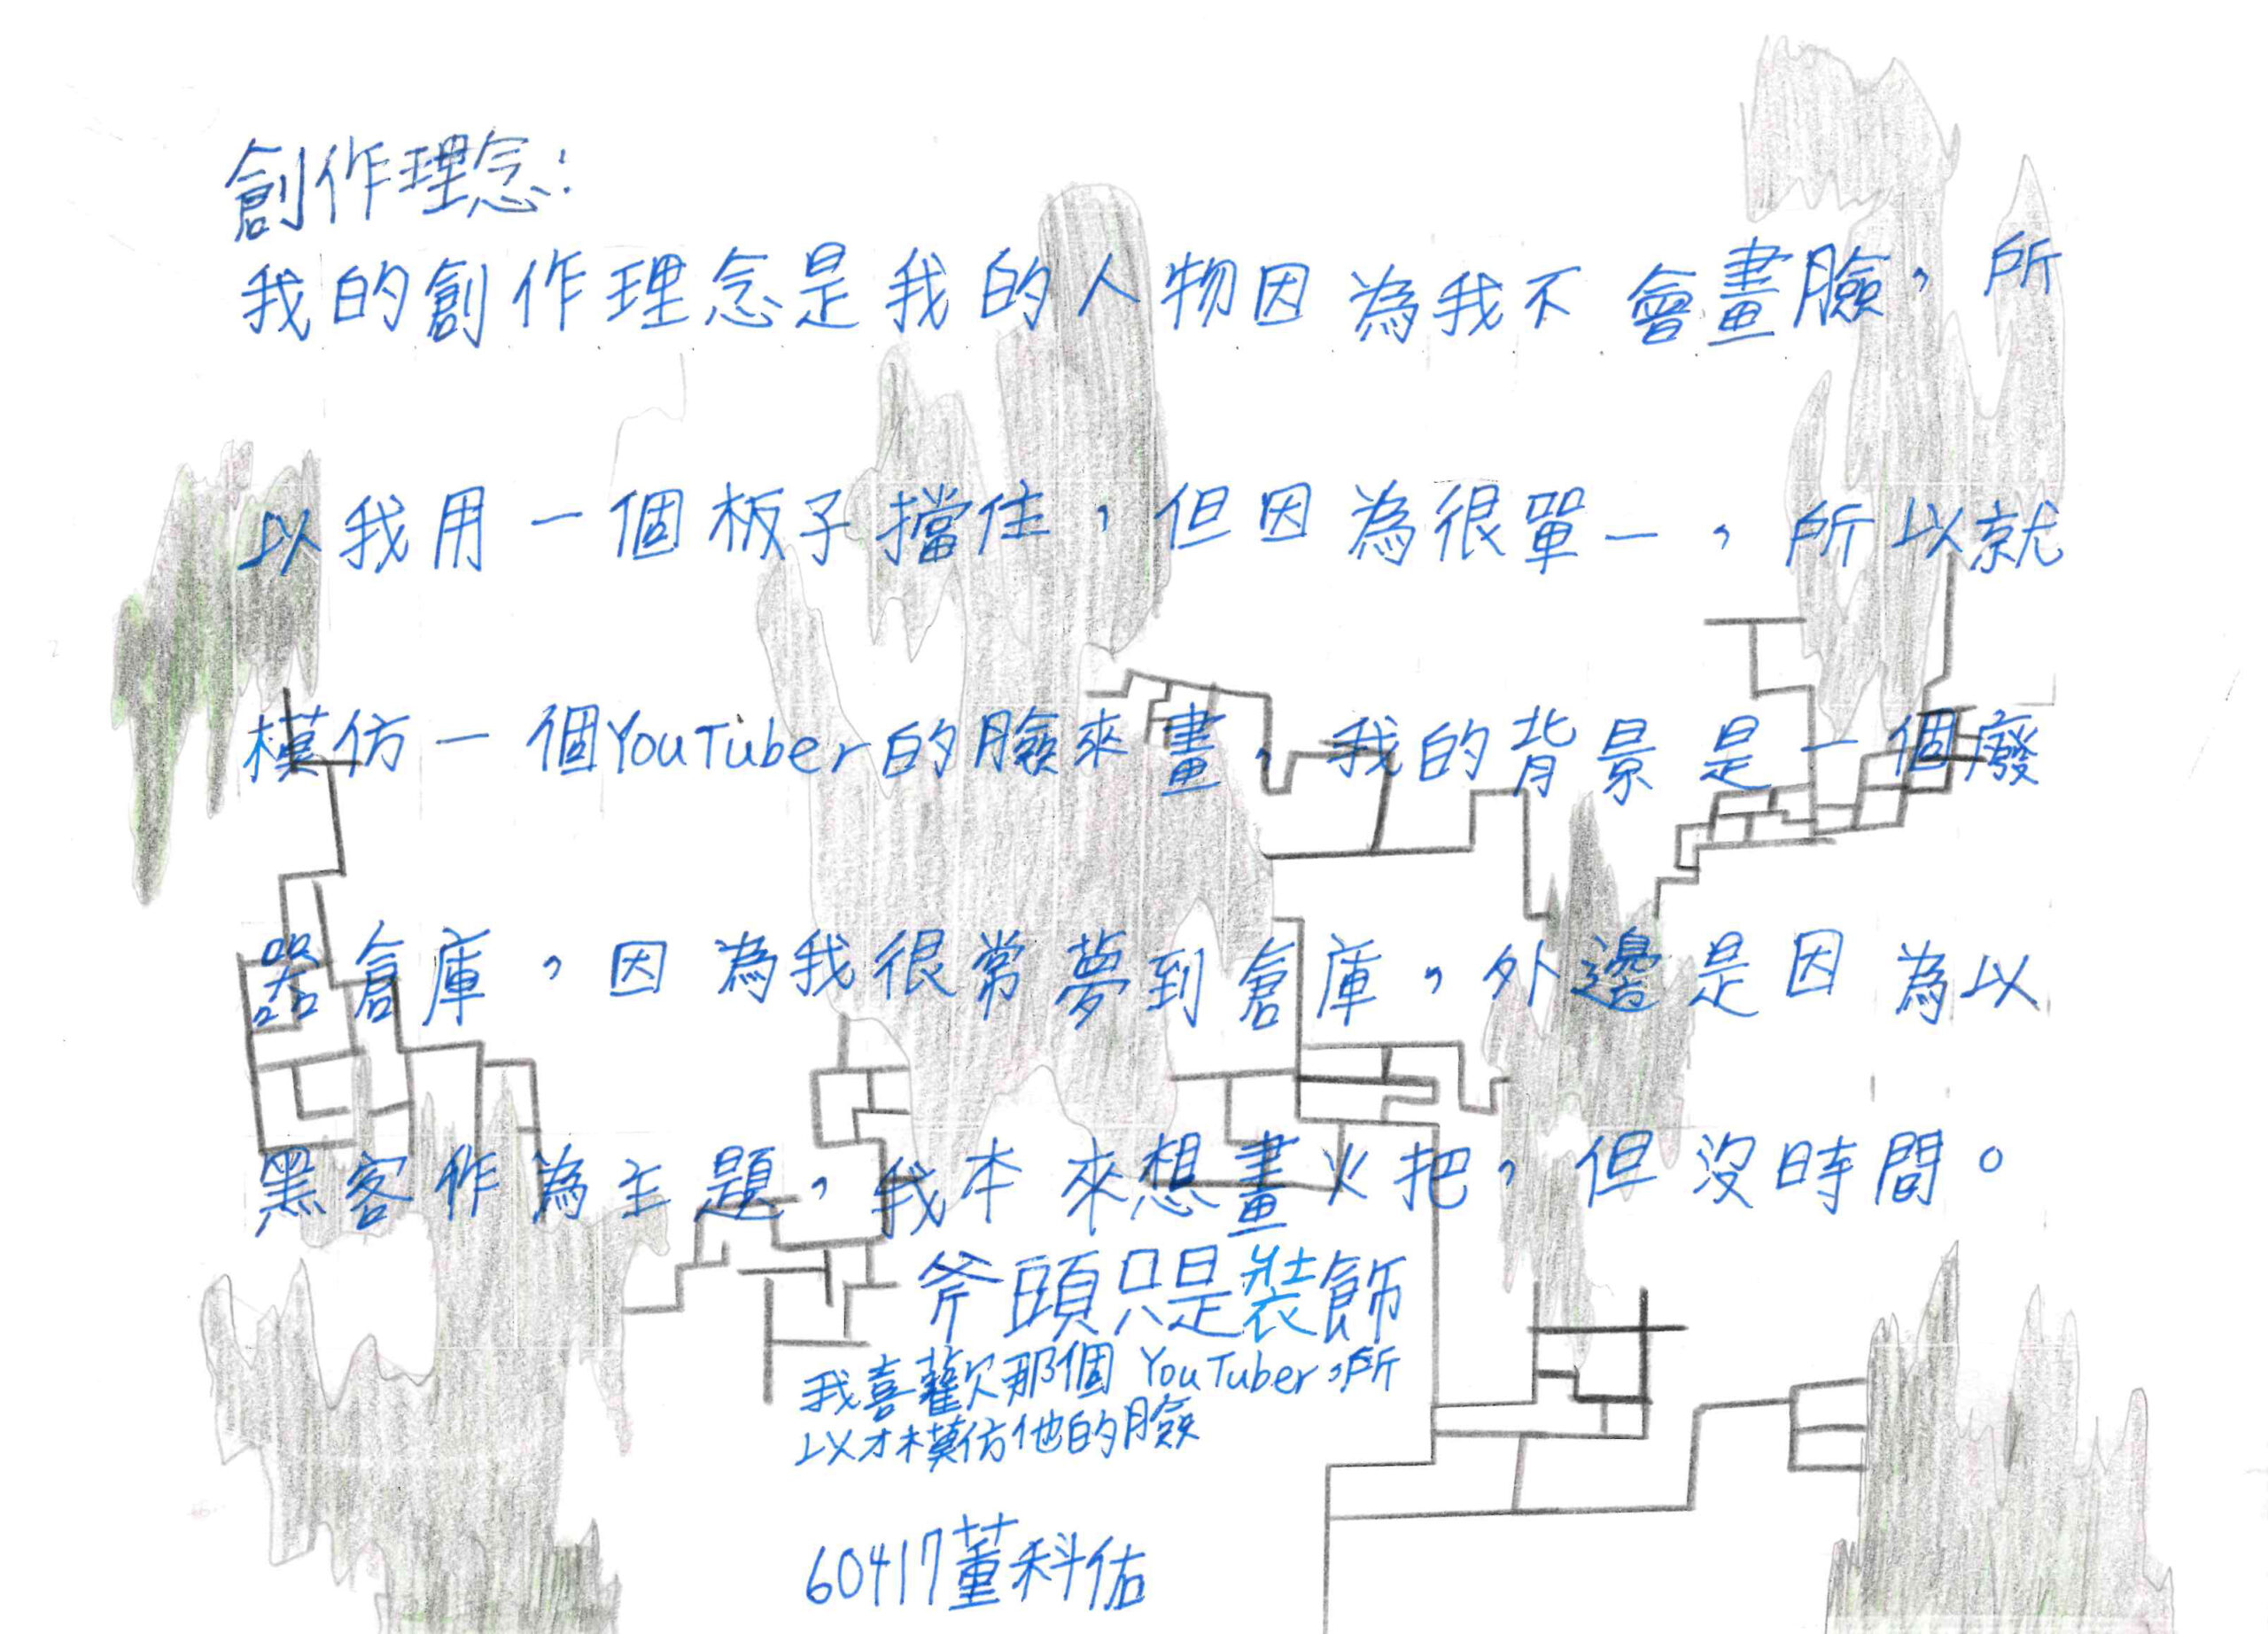 創作理念:
我的創作理念是我的人物因為我不會畫臉，所
以我用一個板子擋住，但因為很單一，所以就
模仿一個YouTuber的臉來畫，我的背景是一個廢
器倉庫，因為我很常夢到倉庫，外邊是因為以
黑客作為主題，我本來想畫火把，但沒時間。
斧頭只是裝飾
我喜歡那個 YouTuber，所
以才模仿他的臉
60417董科佑